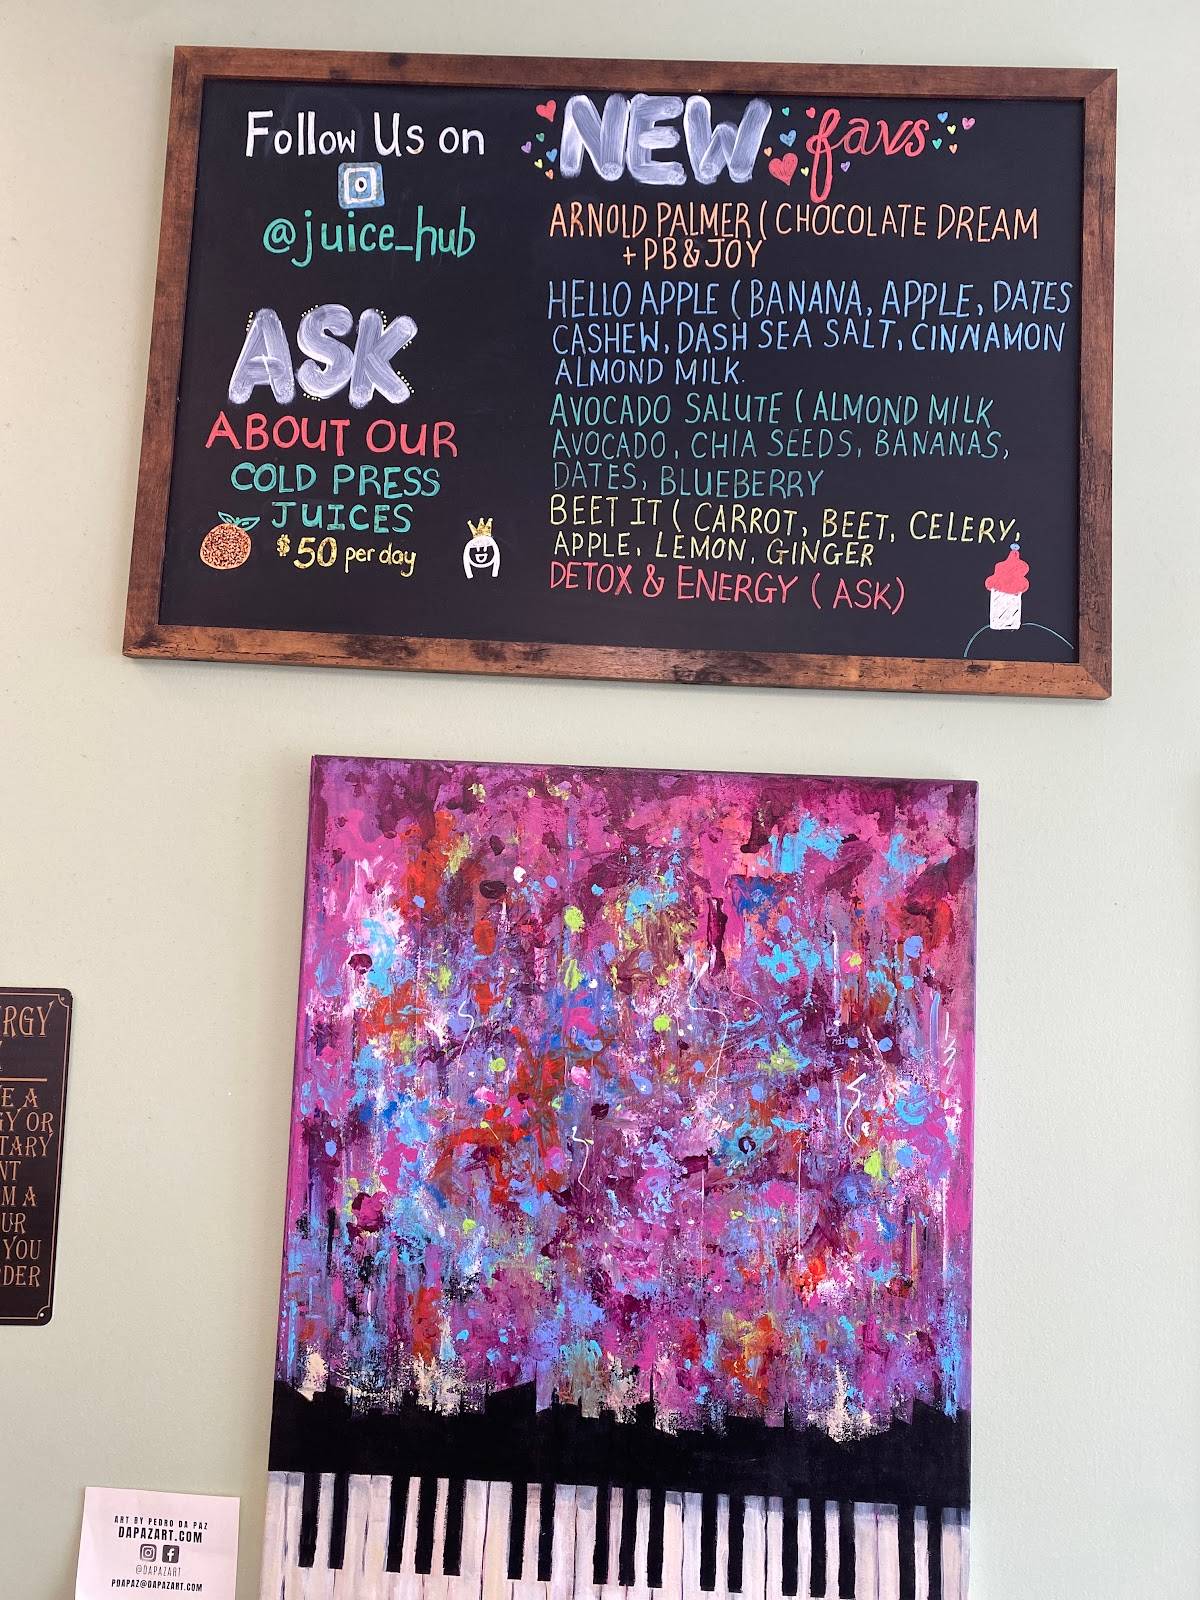 Follow Us on
@juice_hub
ASK
ABOUT OUR
COLD PRESS
JUICES
$50 per day
NEW favs
ARNOLD PALMER ( CHOCOLATE DREAM
+ PB & JOY
HELLO APPLE ( BANANA, APPLE, DATES
CASHEW, DASH SEA SALT, CINNAMON
ALMOND MILK.
AVOCADO SALUTE ( ALMOND MILK
AVOCADO, CHIA SEEDS, BANANAS,
DATES, BLUEBERRY
BEET IT ( CARROT, BEET, CELERY,
APPLE, LEMON, GINGER
DETOX & ENERGY ( ASK)
ART BY PEDRO DA PAZ
DAPAZART.COM
@DAPAZART
PDAPAZ@DAPAZART.COM